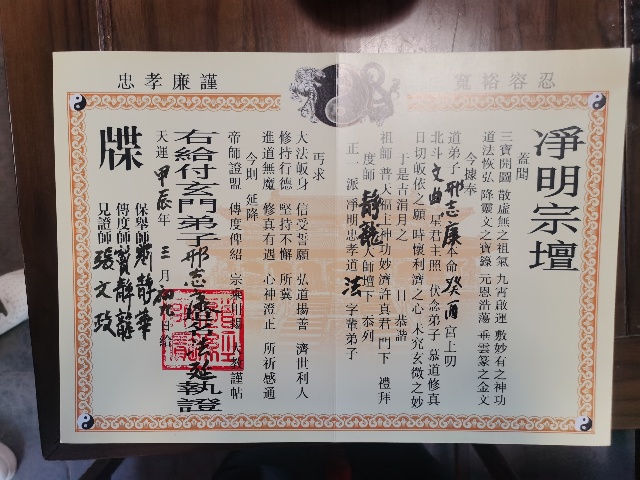 忠孝廉謹
寬裕容忍
淨明宗壇
蓋聞
三寶開圖 散虛無之祖氣 九霄啟運 敷妙有之神功
道法恢弘 降靈文之寶籙 元恩浩蕩 垂雲篆之金文
今據奉
道弟子 邢志廉 本命 癸酉 宮上叨
北斗 文曲 星君主照 伏念弟子 慕道修真
日切皈依之願 時懷利濟之心 未究玄微之妙
于是吉涓月之 日 恭詣
祖師 普天福主神功妙濟許真君 門下 禮拜
度師 靜龍 大師壇下 忝列
正一派 淨明忠孝道 法 字輩弟子
丐求
大法皈身 信受誓願 弘道揚善 濟世利人
修持行德 堅持不懈 所冀
進道無魔 修真有遇 心神澄正 所祈感通
今則 延降
帝師證盟 傳度俾紹 宗 謹帖
右給付玄門弟子邢志 法 執證
天運 甲辰 年 三 月 初九 日 給
保舉師 靜華
傳度師 靜龍
見證師 張文政
牒